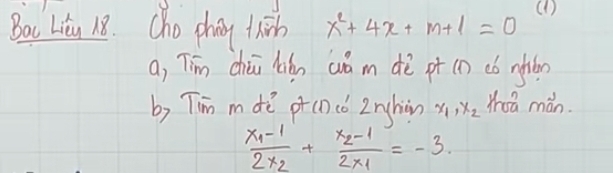 Bạc Liêu 18. Cho phương trình x² + 4x + m+1 = 0 (1)
a, Tìm điều kiện của m để pt (1) có nghiệm
b, Tìm m để pt (1) có 2 nghiệm x₁, x₂ thoả mãn.
(x₁-1)/(2x₂) + (x₂-1)/(2x₁) = -3.